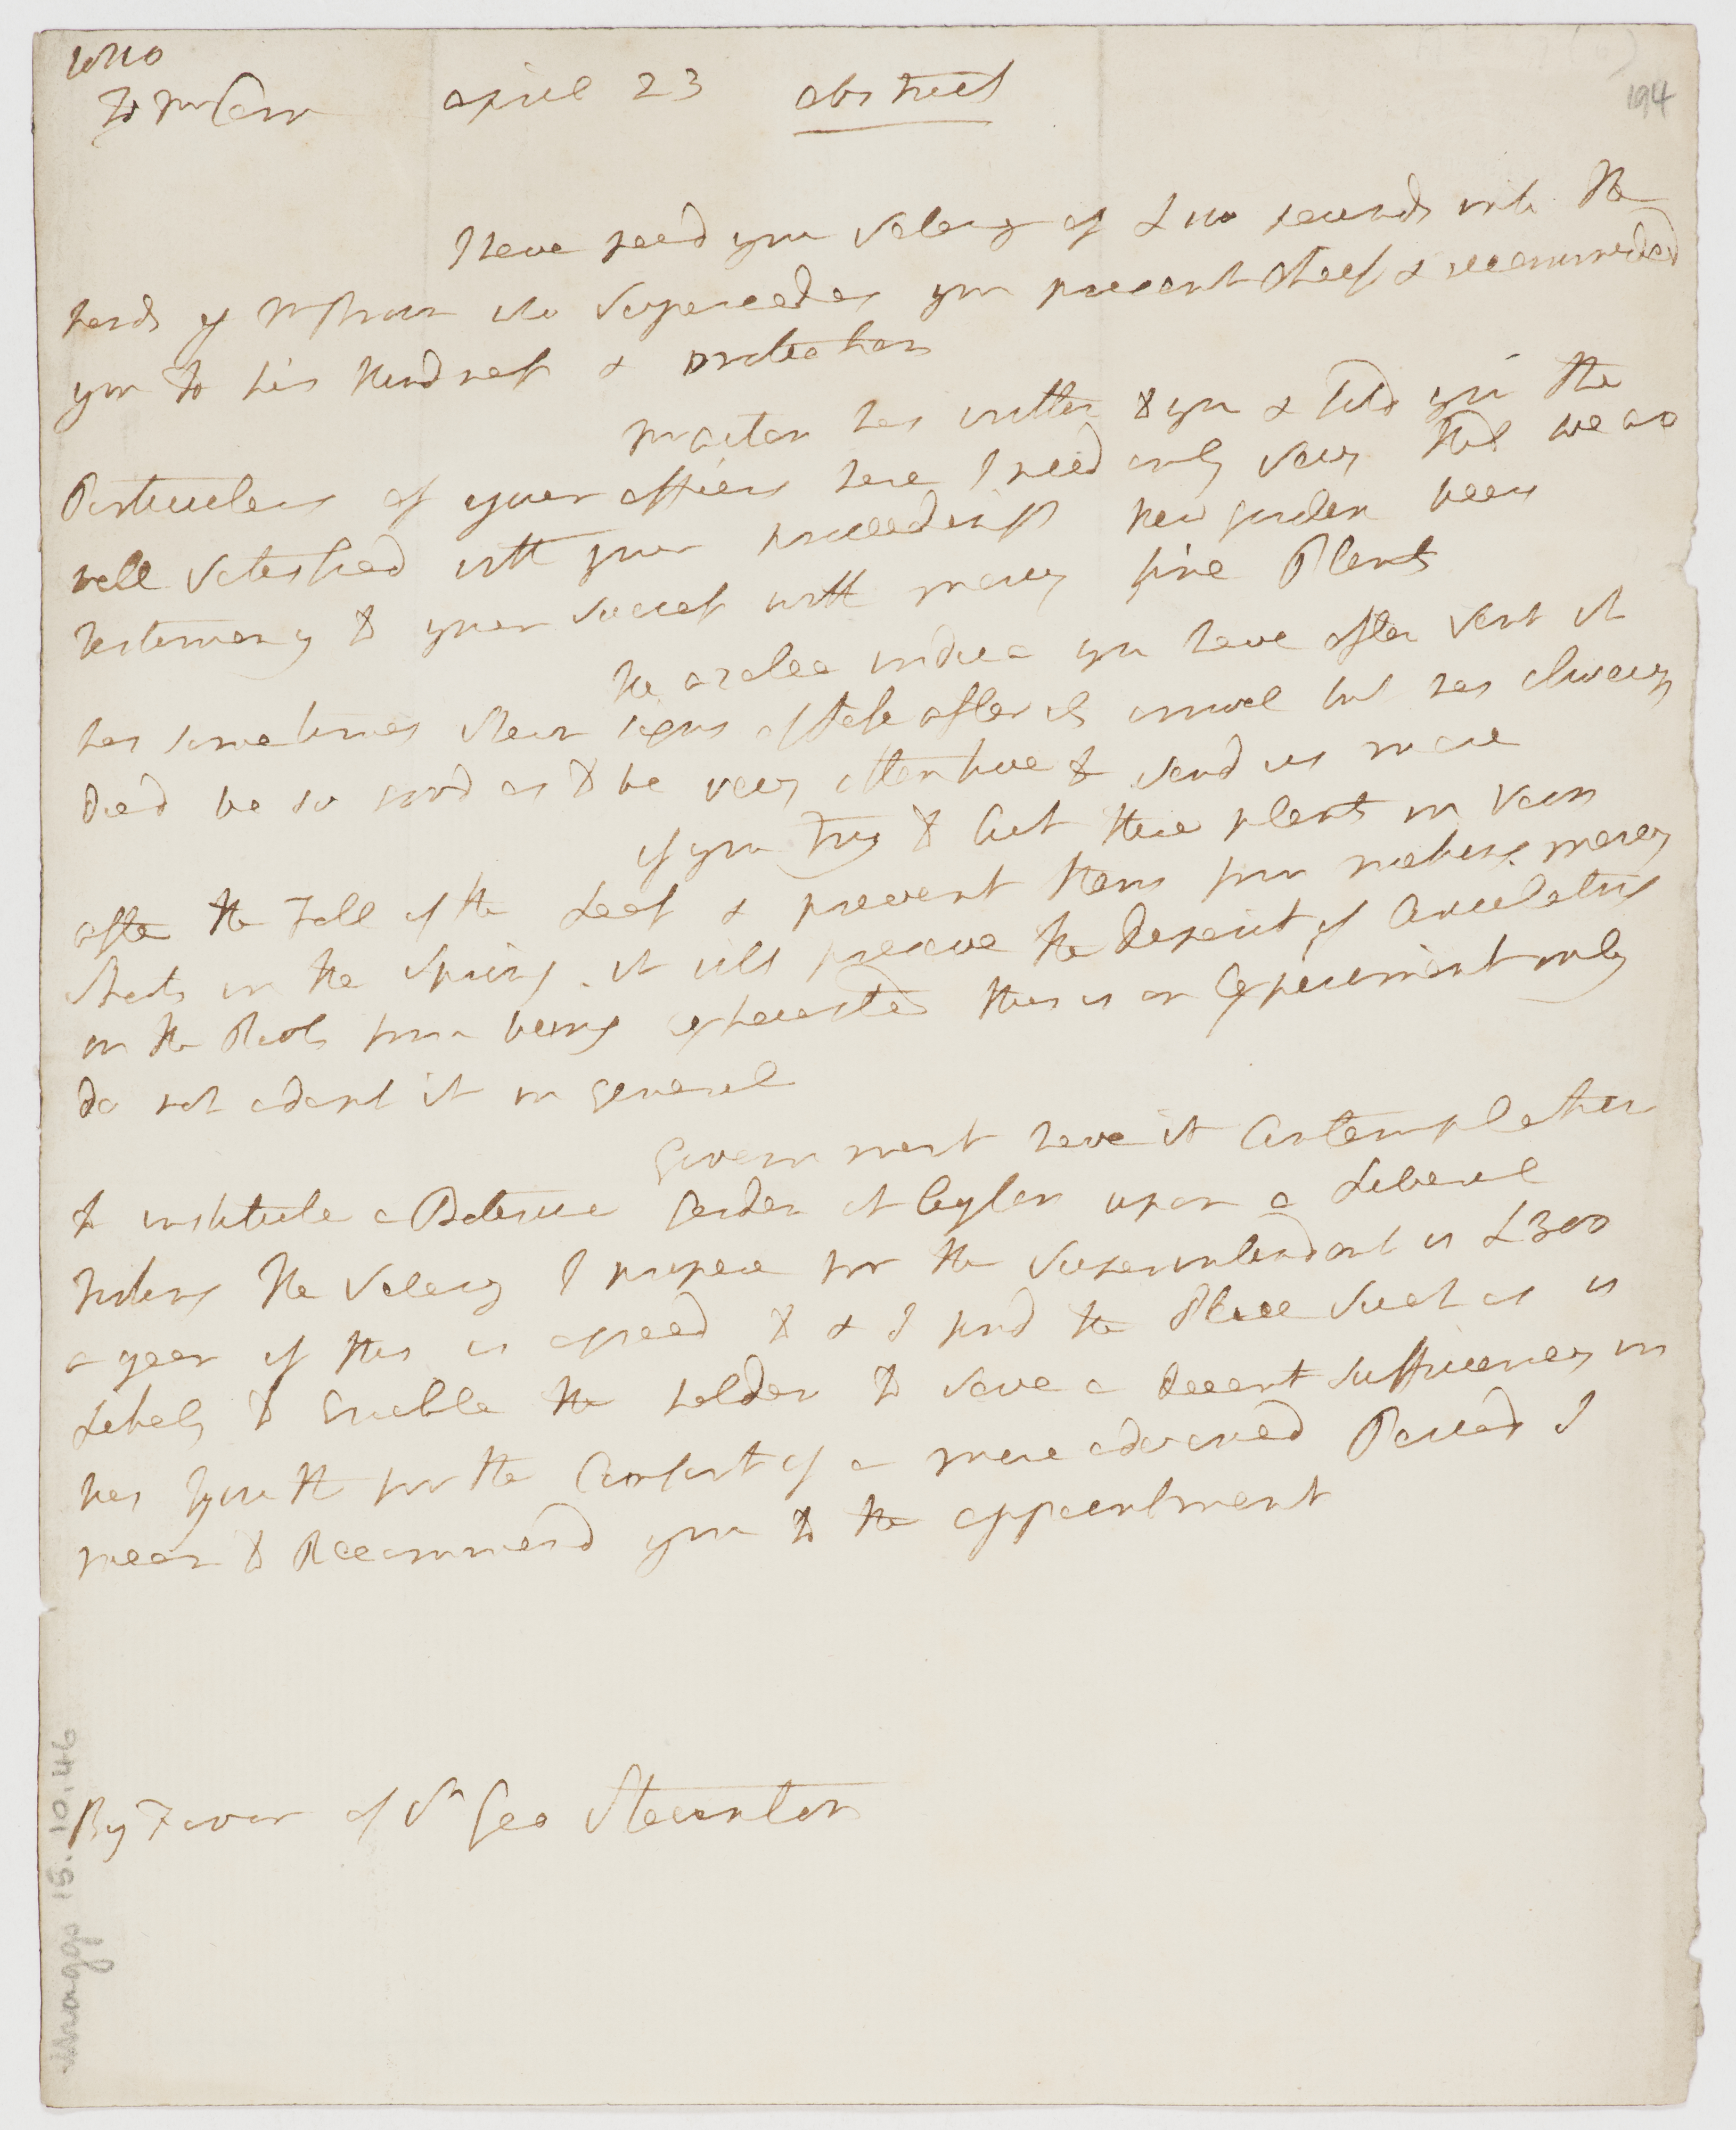 1810
To Mr Kerr april 23 abstract
194
I have paid your Salary of £100 pounds into the
hands of Mr who Supercedes your present cheif & recommended
you to his kindness & protection
Mr Aiton has written to you & told you the
Particulars of your affairs here I need only Say that we are
well Satisfied with your proceedings Kew garden bears
testimony to your Success with many fine Plants
the azalea indica you have often Sent it
has sometimes shewn signs of life after its arrival but has always
Died be so good as to be very attentive & send us more
if you try to Cut these plants in Vern
after the Fall of the Leaf & prevent them from making many
Shoots in the Spring. it will preserve the Deposit of Circulating
in the Roots from being exhausted this is an Experiment only
do not adopt it in General
Government have it in Contemplation
to institute a Botanic Garden at Ceylon upon a Liberal
footing the Salary I propose for the Superintendant is £300
a year if this is agreed to & I find the Place Such as is
Likely to Enable the holder to save a decent sufficiency in
his Youth for the Comfort of a more advanced Period I
mean to Recommend you to the appointment
By Favor of Sr Geo Staunton
Maggs 15.10.46